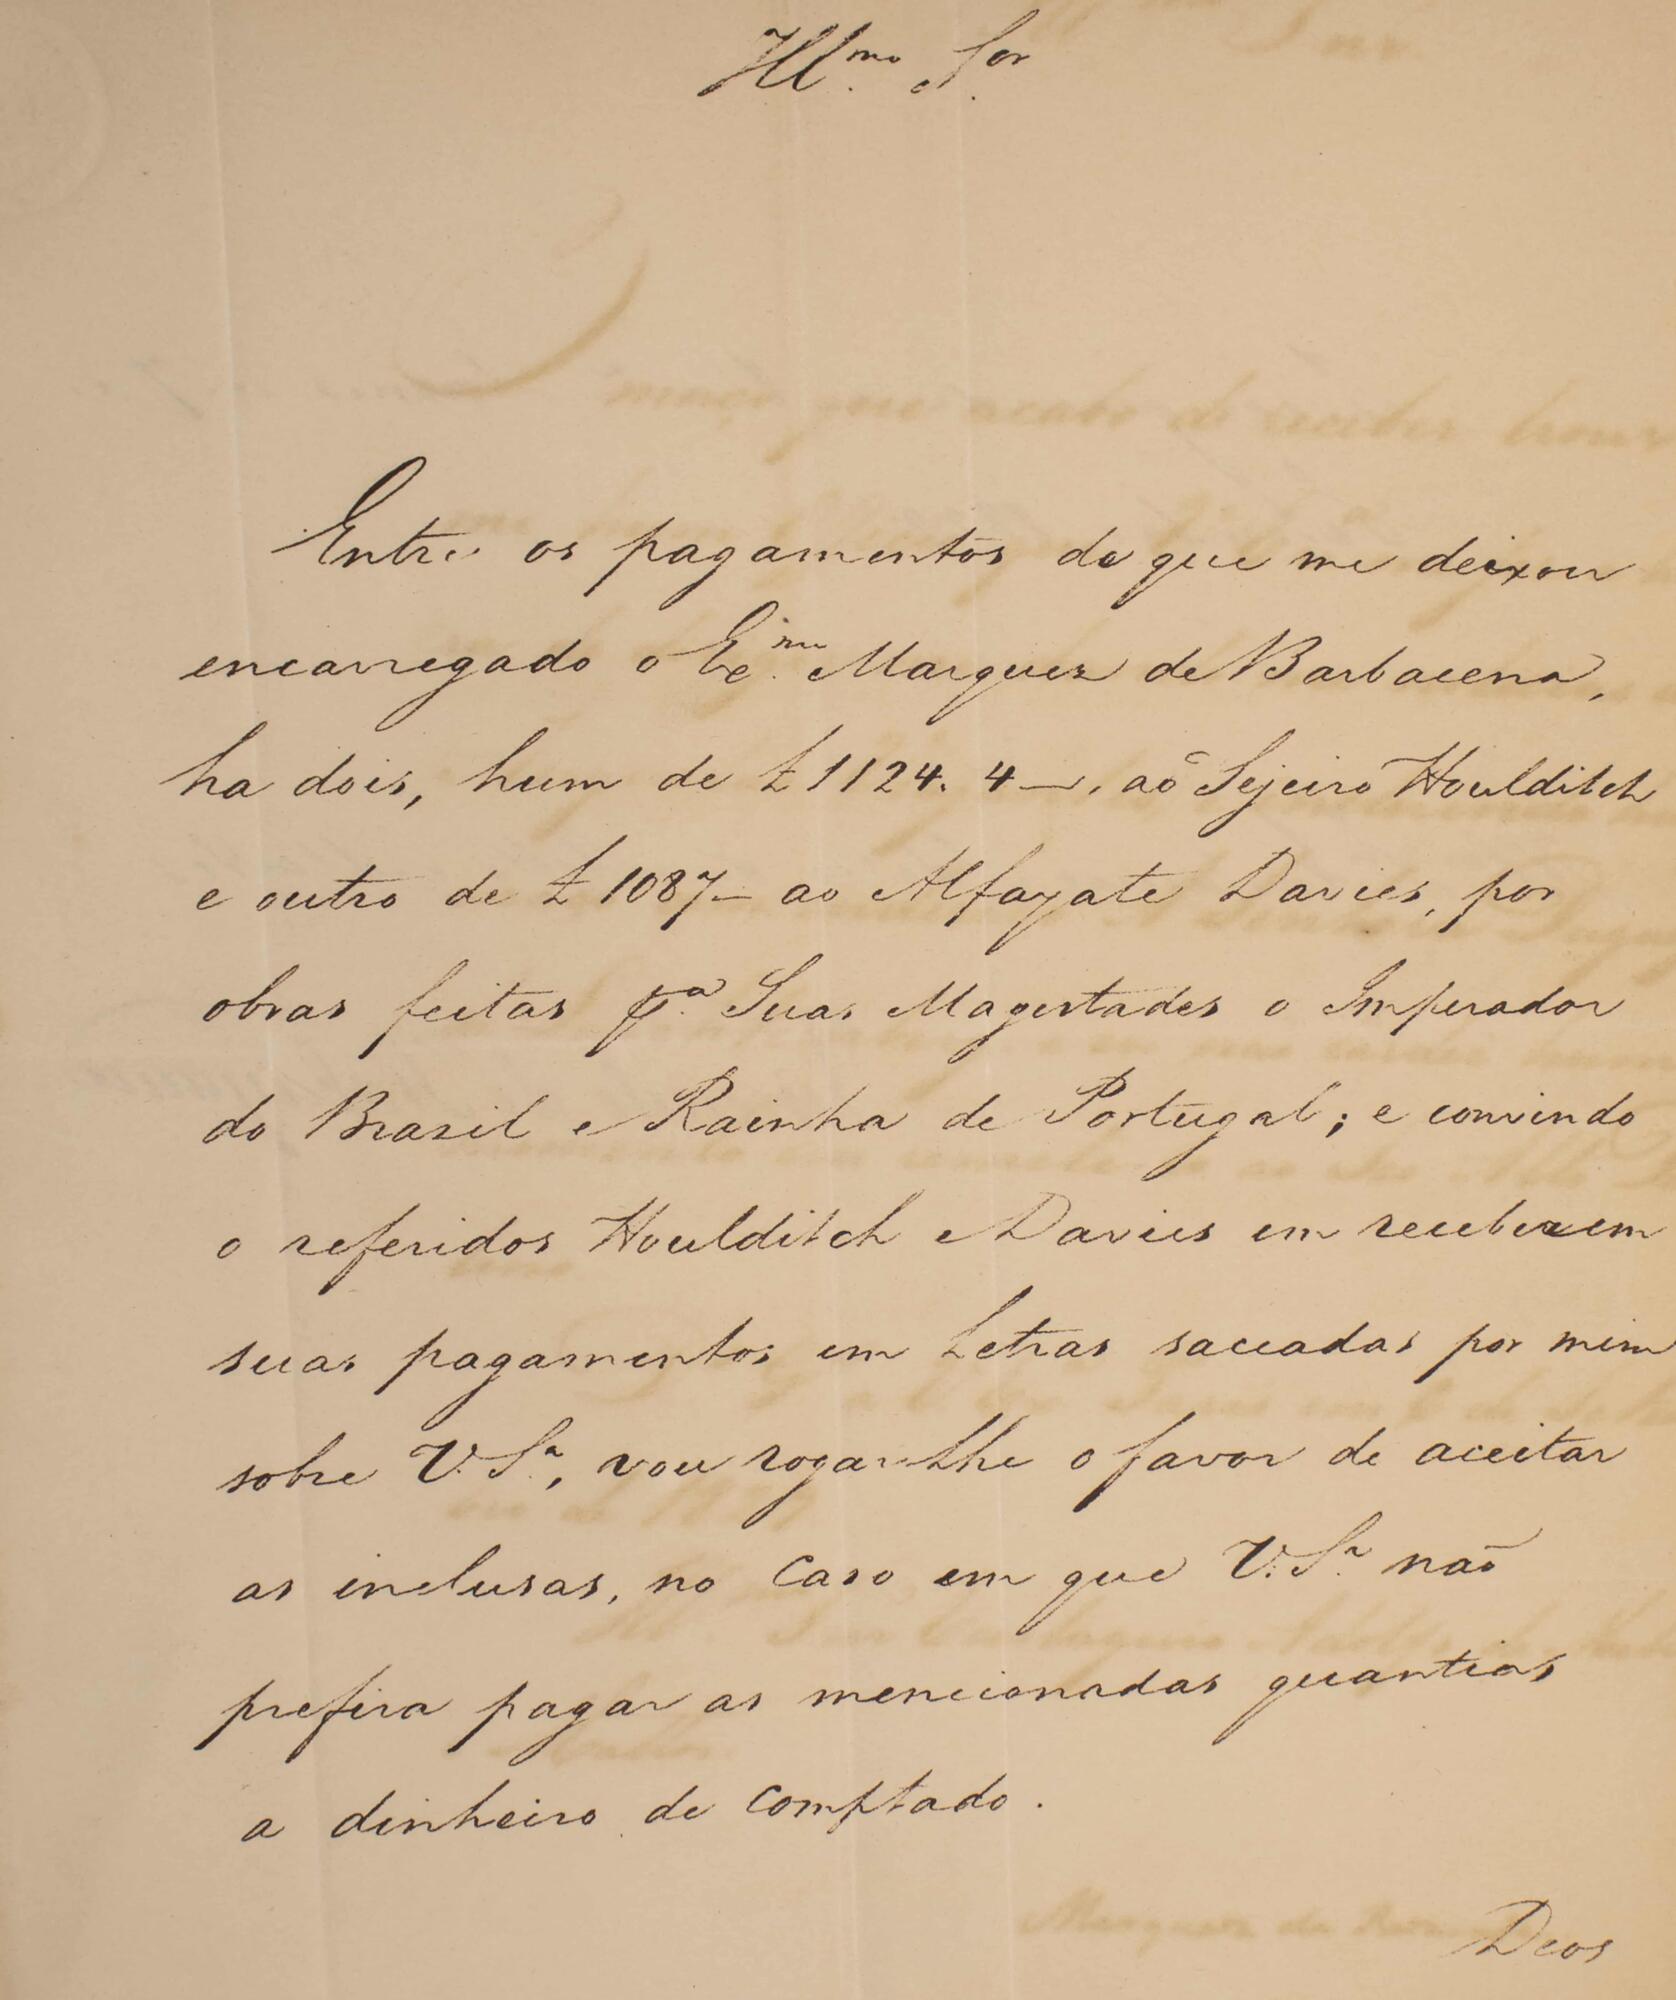 Ill.mo S.or
Entre os pagamentos de que me deixou
encarregado o Ex.mo Marquez de Barbacena,
ha dois, hum de £ 1124. 4 —, ao Sejeiro Houlditch
e outro de £ 1087 — ao Alfayate Davies, por
obras feitas p.a Suas Magestades o Imperador
do Brasil e Rainha de Portugal; e convindo
o referidos Houlditch e Davies em receberem
suas pagamentos em Letras saccadas por mim
sobre V. S.a, vou rogar-lhe o favor de aceitar
as inclusas, no caso em que V. S.a não
prefira pagar as mencionadas quantias
a dinheiro de comptado.
Deos